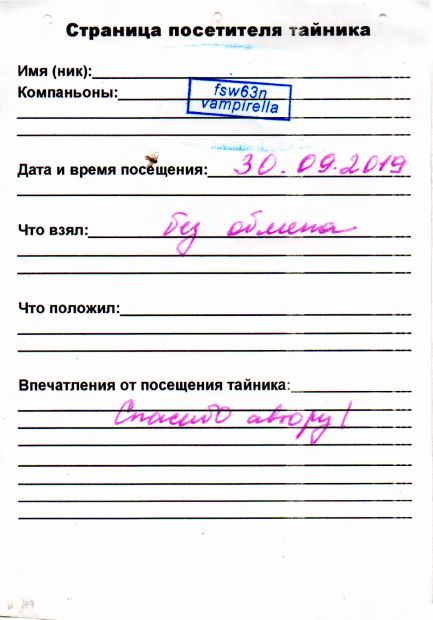 Страница посетителя тайника
Имя (ник):
Компаньоны:
fsw63n
vampirella
Дата и время посещения: 30.09.2019
Что взял: без обмена
Что положил:
Впечатления от посещения тайника:
Спасибо автору!